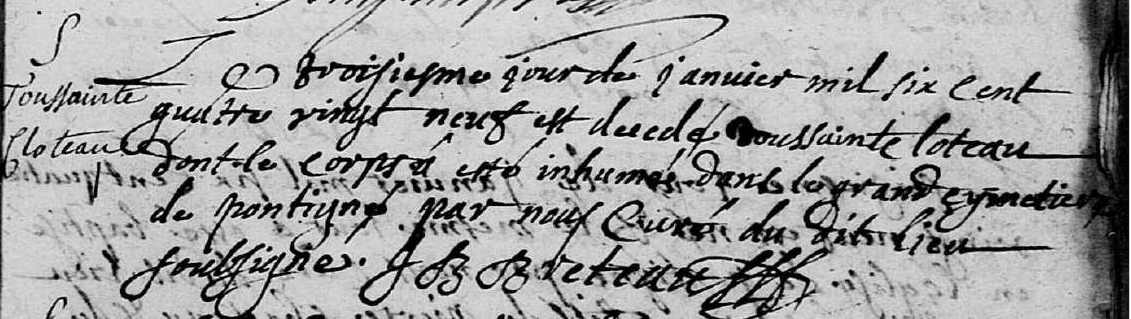 S
Toussainte
Loteau
Le troisiesme jour de janvier mil six cent
quatre vingt neuf est decedé toussainte loteau
dont le corps a esté inhumé dans le grand cymetiere
de pontigné par nous Curé du dit lieu
soubsigné. J B Breteau